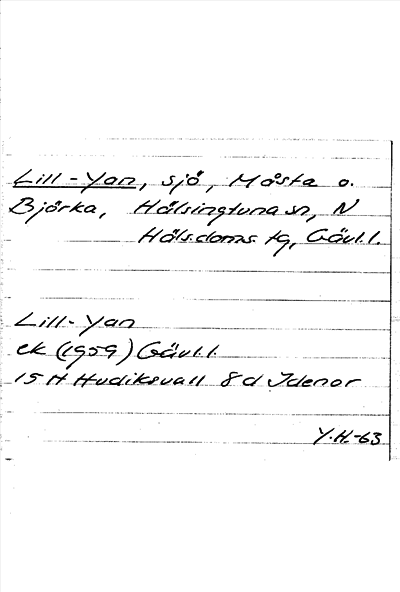 Lill-Yan, sjö, Måsta o.
Björka, Hälsingtuna sn, N
Häls. doms. tg, Gävl.l.
Lill-Yan
ek (1959) Gävl.l.
15 H Hudiksvall 8d Idenor
Y.H.-63